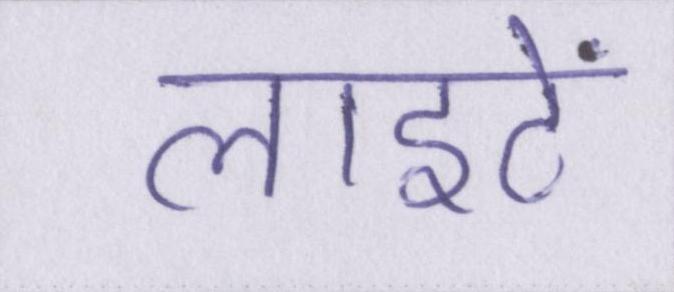 लाइटें